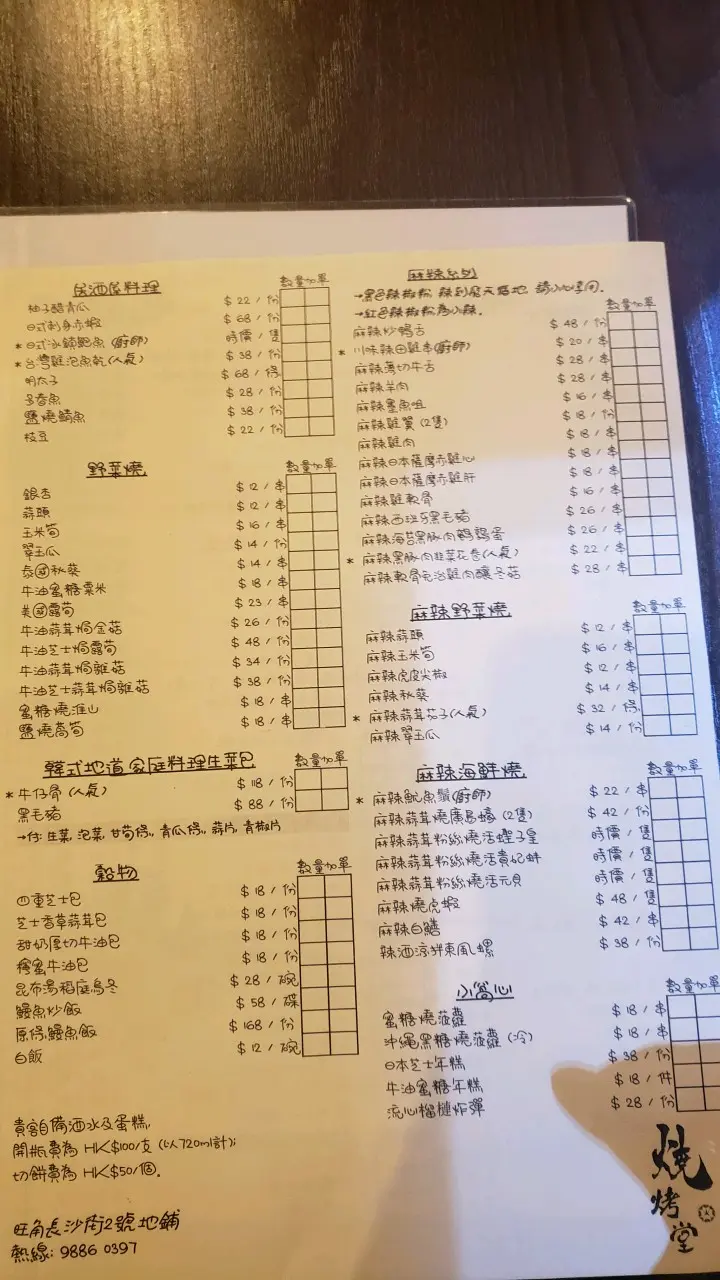 居酒屋料理 數量加單
柚子醋青瓜 $22/份
日式刺身赤蝦 $68/份
*日式冰鎮鮑魚(廚師) 時價/隻
*台灣雞泡魚乾(人氣) $38/份
明太子 $68/條
多春魚 $28/份
鹽燒鯖魚 $38/份
枝豆 $22/份
野菜燒 數量加單
銀杏 $12/串
蒜頭 $12/串
玉米筍 $16/串
翠玉瓜 $14/份
泰國秋葵 $14/串
牛油蜜糖粟米 $18/串
美國露筍 $23/串
牛油蒜茸焗金菇 $26/份
牛油芝士焗露筍 $48/份
牛油蒜茸焗雜菇 $34/份
牛油芝士蒜茸焗雜菇 $38/份
蜜糖燒淮山 $18/串
鹽燒萵筍 $18/串
韓式地道家庭料理生菜包 數量加單
*牛仔骨(人氣) $118/份
黑毛豬 $88/份
→付:生菜,泡菜,甘筍條,青瓜條,蒜片,青椒片
穀物 數量加單
四重芝士包 $18/份
芝士香草蒜茸包 $18/份
甜奶厚切牛油包 $18/份
蜜牛油包 $18/份
昆布湯稻庭烏冬 $28/碗
鰻魚炒飯 $58/碟
原條鰻魚飯 $168/份
白飯 $12/碗
貴客自備酒水及蛋糕,
開瓶費為 HK$100/支 (以720ml計);
切餅費為 HK$50/個.
旺角長沙街2號地鋪
熱線: 9886 0397
麻辣系列
→黑色辣椒粉 辣到 請小心享用.
→紅色辣椒粉為小辣. 數量加單
麻辣炒鴨舌 $48/份
*川味辣田雞串(廚師) $20/串
麻辣薄切牛舌 $28/串
麻辣羊肉 $28/串
麻辣墨魚咀 $16/串
麻辣雞翼(2隻) $18/份
麻辣雞肉 $18/串
麻辣日本薩摩赤雞心 $18/串
麻辣日本薩摩赤雞肝 $18/串
麻辣雞軟骨 $16/串
麻辣西班牙黑毛豬 $26/串
麻辣海苔黑豚肉鵪鶉蛋 $26/串
*麻辣黑豚肉韭菜花卷(人氣) $22/串
麻辣軟骨免治雞肉釀冬菇 $28/串
麻辣野菜燒 數量加單
麻辣蒜頭 $12/串
麻辣玉米筍 $16/串
麻辣虎皮尖椒 $12/串
麻辣秋葵 $14/串
*麻辣蒜茸茄子(人氣) $32/條
麻辣翠玉瓜 $14/份
麻辣海鮮燒 數量加單
*麻辣魷魚鬚(廚師) $22/串
麻辣蒜茸燒廣島蠔(2隻) $42/份
麻辣蒜茸粉絲燒活蟶子皇 時價/隻
麻辣蒜茸粉絲燒活貴妃蚌 時價/隻
麻辣蒜茸粉絲燒活元貝 時價/隻
麻辣燒虎蝦 $48/隻
麻辣白鱔 $42/串
辣酒涼拌東風螺 $38/份
小窩心 數量加單
蜜糖燒菠蘿 $18/串
沖繩黑糖燒菠蘿(冷) $18/串
日本芝士年糕 $38/份
牛油蜜糖年糕 $18/件
流心榴槤炸彈 $28/份
燒烤堂